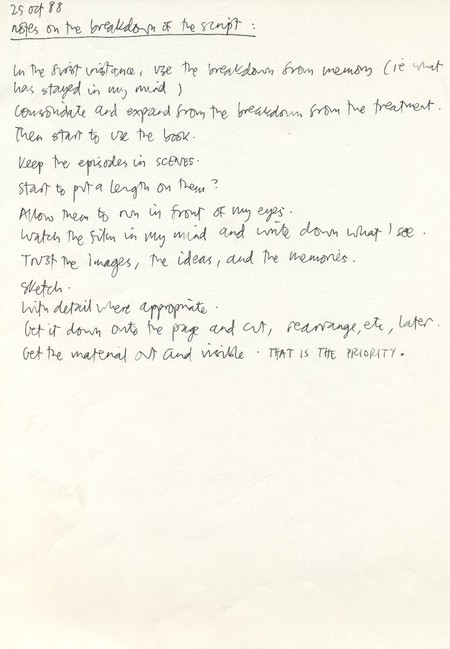 25 oct 88
notes on the breakdown of the script :
In the first instance, use the breakdown from memory (ie what
has stayed in my mind)
Consolidate and expand from the breakdown from the treatment.
Then start to use the book.
Keep the episodes in SCENES.
Start to put a length on them?
Allow them to run in front of my eyes.
Watch the film in my mind and write down what I see.
Trust the images, the ideas, and the memories.
Sketch.
With detail where appropriate.
Get it down onto the page and cut, rearrange, etc, later.
Get the material out and visible. THAT IS THE PRIORITY.